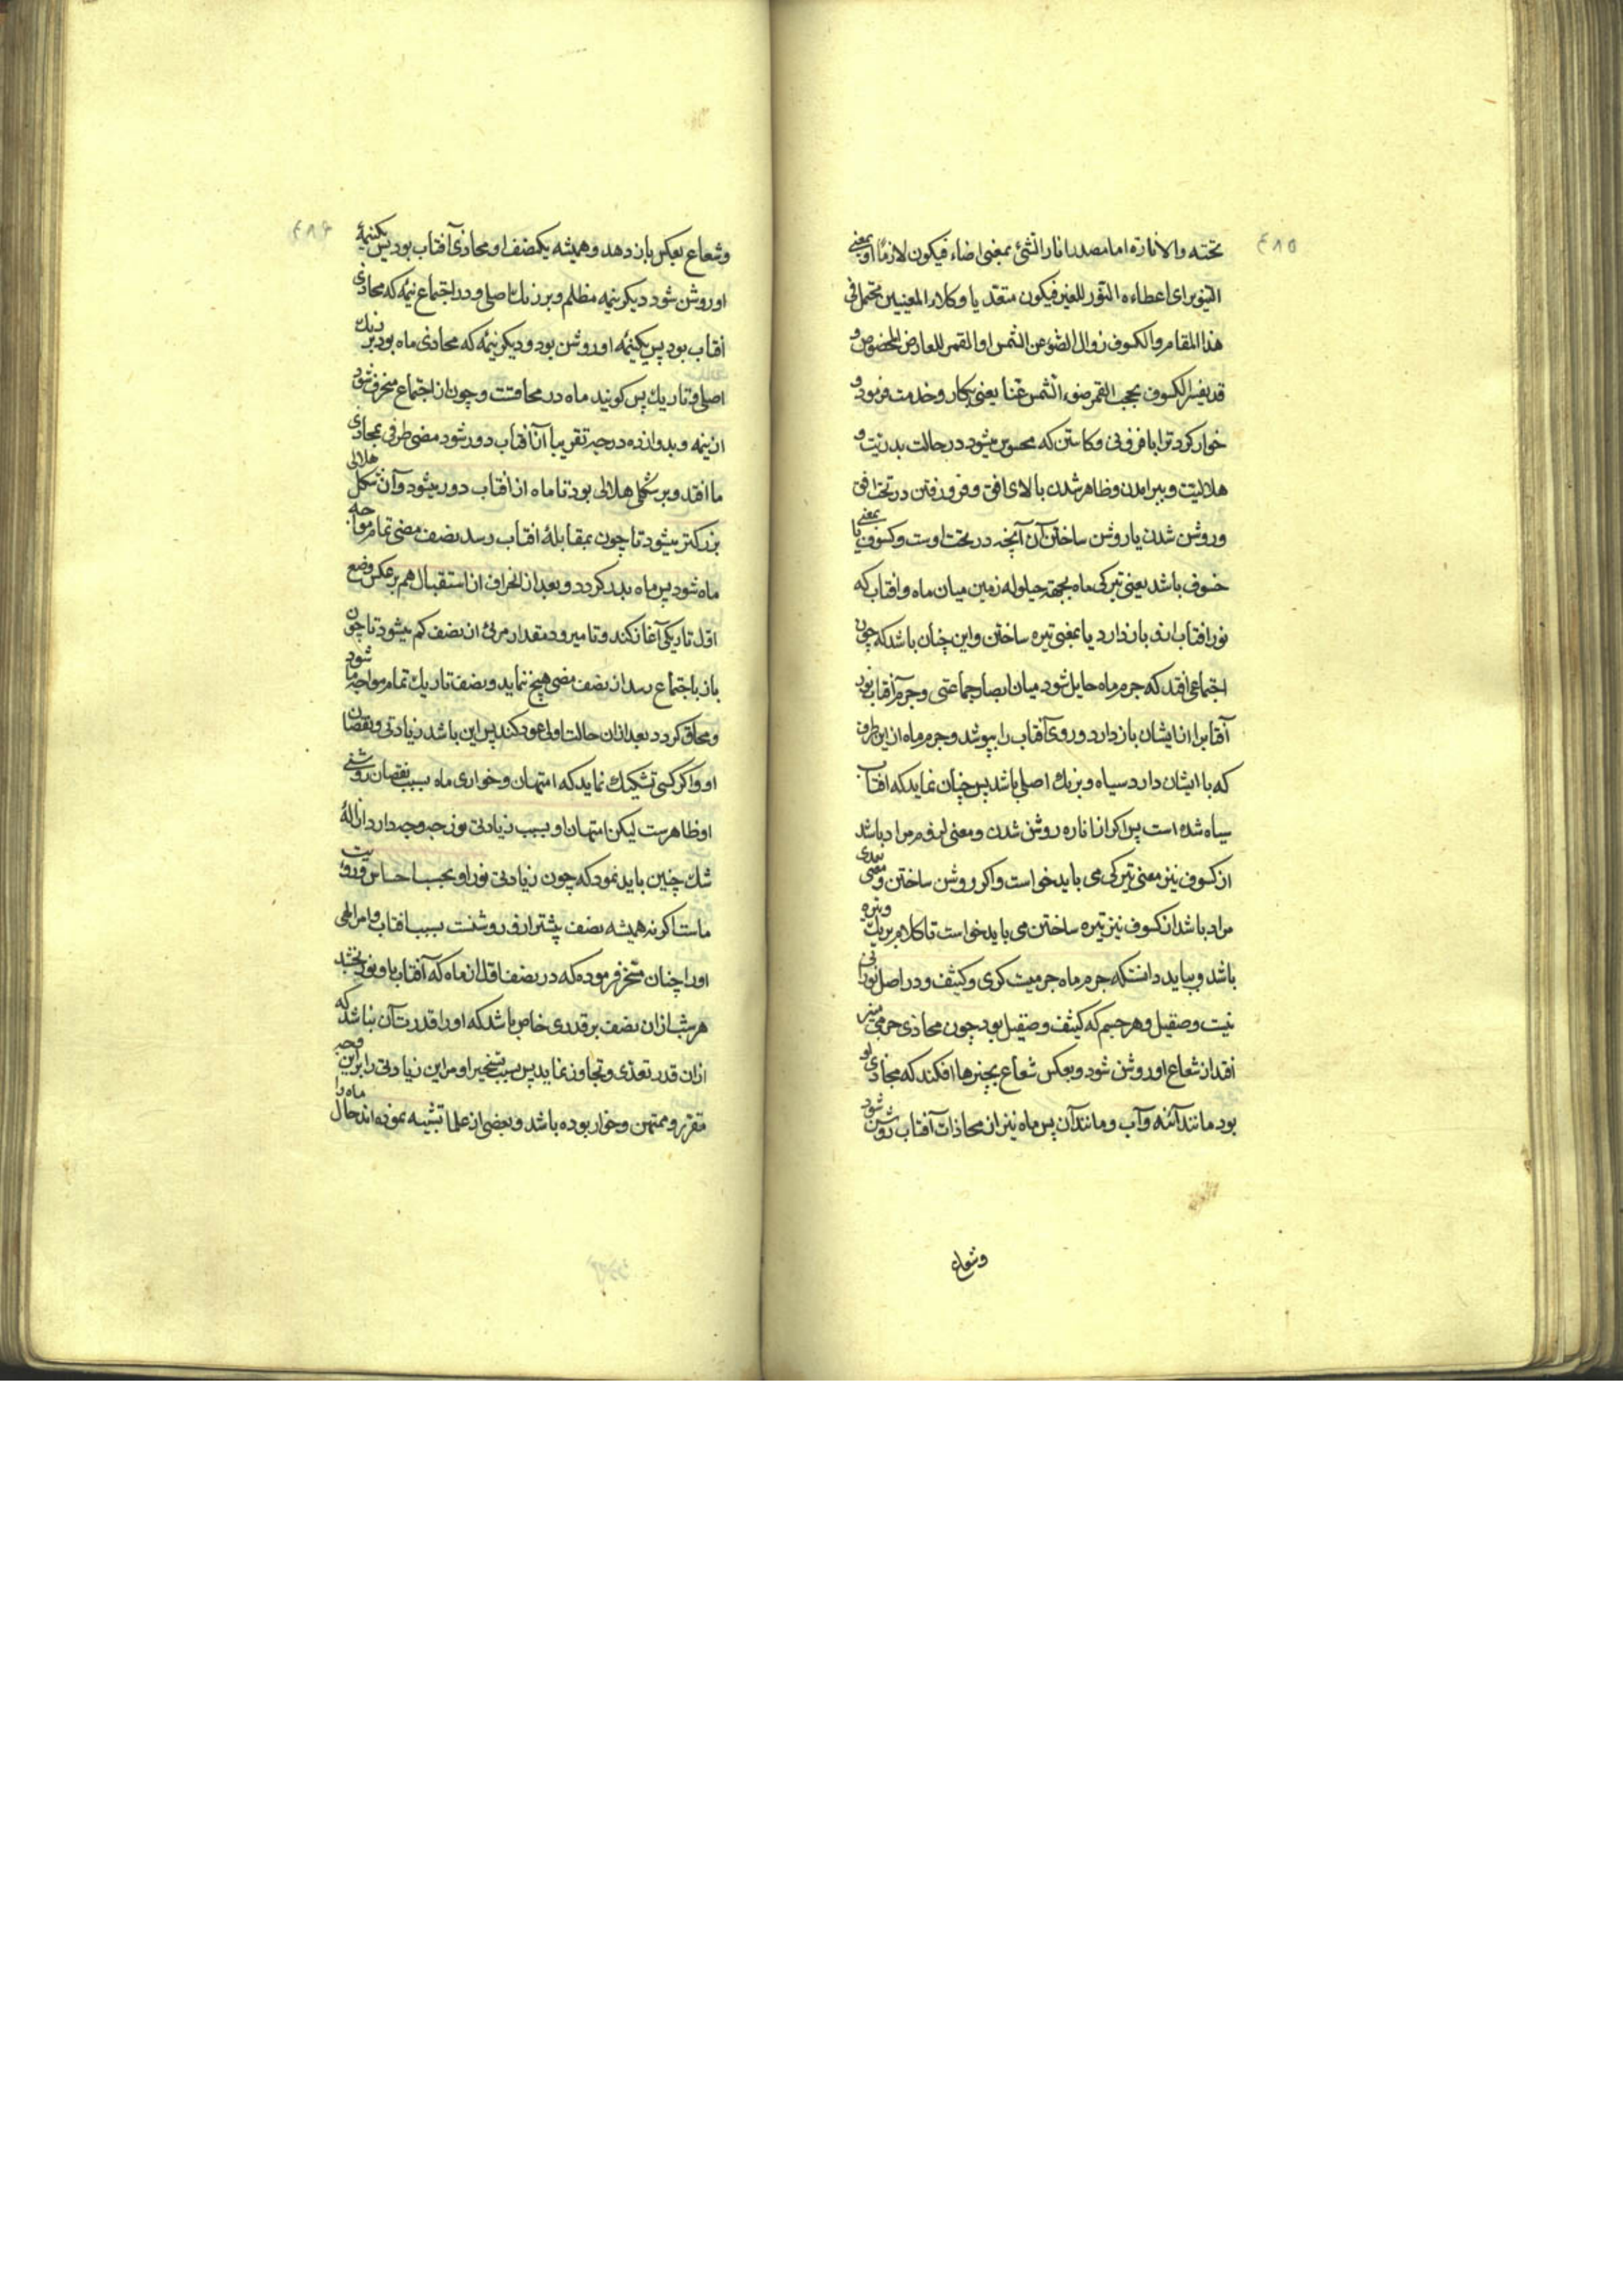 ٤٨٥
تحته والانارة اما مصدر انار الشئ بمعنی اضاء فیکون لازمًا او بمعنی
التنویر ای اعطاءه النور للغیر فیکون متعدیا وکلا المعنیین محتمل فی
هذا المقام والکسوف زوال الضوء عن الشمس او القمر للعارض المخصوص و
قد یفسر الکسوف بحجب القمر ضوء الشمس عنا یعنی بکار وخدمت فرمود و
خوار کرد ترا بافزونی وکاستن که محسوس میشود در حالت بدریت و
هلالیت وببرامدن وظاهر شدن بالای افق وفرو رفتن در تحت افق
وروشن شدن یا روشن ساختن آن آنچه در تحت اوست وکسوف یا بمعنی
خسوف باشد یعنی تیرکی ماه بجهة حیلوله زمین میان ماه وافتاب که
نور افتاب ازو باز دارد یا بمعنی تیره ساختن واین چنان باشد که چون
اجتماعی افتد که جرم ماه حایل شود میان ابصار جماعتی وجرم آفتاب نور
آفتاب را از ایشان باز دارد وروی آفتاب را بپوشد وجرم ماه از این طرف
که با ایشان دارد سیاه وبرنك اصلی باشد پس چنان نماید که افتاب
سیاه شده است پس اکر از اناره روشن شدن ومعنی لزوم مراد باشد
از کسوف نیز معنی تیرکی می باید خواست واکر روشن ساختن ومعنی تعدی
مراد باشد از کسوف نیز تیره ساختن می باید خواست تا کلام بر یك وتیره
باشد وبباید دانست که جرم ماه جرمیست کری وکثیف ودر اصل نورانی
نیست وصقیل وهر جسم که کثیف وصقیل بود چون محاذی جرمی منیر
افتد از شعاع او روشن شود وبعکس شعاع بچیزها افکند که محاذی او
بود مانند آئنه وآب ومانند آن پس ماه نیز از محاذات آفتاب روشن شود
وشعاع
٤٨٦
وشعاع بعکس باز دهد وهمیشه یکنصف او محاذی آفتاب بود پس یکنیمهٔ
او روشن شود دیکر نیمه مظلم وبر رنك اصلی ودر اجتماع نیمهٔ که محاذی
افتاب بود پس یکنیمه او روشن بود ودیکر نیمهٔ که محاذی ماه بود بر رنك
اصلی وتاریك پس کویند ماه در محاقست وچون از اجتماع منحرف شود
ازنیمه وبدوازده درجه تقریبا از آفتاب دور شود مضی طرفی بمحاذی
ما افتد وبر شکلی هلالی بود تا ماه از افتاب دور میشود وآن شکل هلالی
بزرکتر میشود تا چون بمقابلهٔ افتاب رسد نصف مضی تمام مواجه
ماه شود پس ماه بدر کردد وبعد از انحراف از استقبال هم بر عکس وضع
اول تاریکی آغاز کند وتا میرود مقدار مرئی از نصف کم میشود تا چون
باز باجتماع رسد از نصف مضی هیچ ننماید ونصف تاریك تمام مواجه ما شود
ومحاق کردد بعد ازان حالت اولی عود کند پس این باشد زیادتی ونقصان
او واکر کسی تشکیك نماید که امتهان وخواری ماه بسبب نقصان روشنی
او ظاهرست لیکن امتهان او بسبب زیادتی نور چه وجه دارد ازالهٔ
شك چنین باید نمود که چون زیادتی نور او بحسب احساس ورویت
ماست اکر نه همیشه نصف بیشتر ازو روشنست بسبب افتاب وامر الهی
اورا چنان مسخر فرموده که در نصف اقل از ماه که آفتاب باو نور نبخشد
هر شب ازان نصف بر قدری خاص باشد که اورا قدرت آن نباشد که
ازان قدر تعدی وتجاوز نماید پس بسبب تسخیر او مر این زیادتی را بر این وجه
مقرر وممتهن وخوار بوده باشد وبعضی از علما تشبیه نموده اند حال ماه را